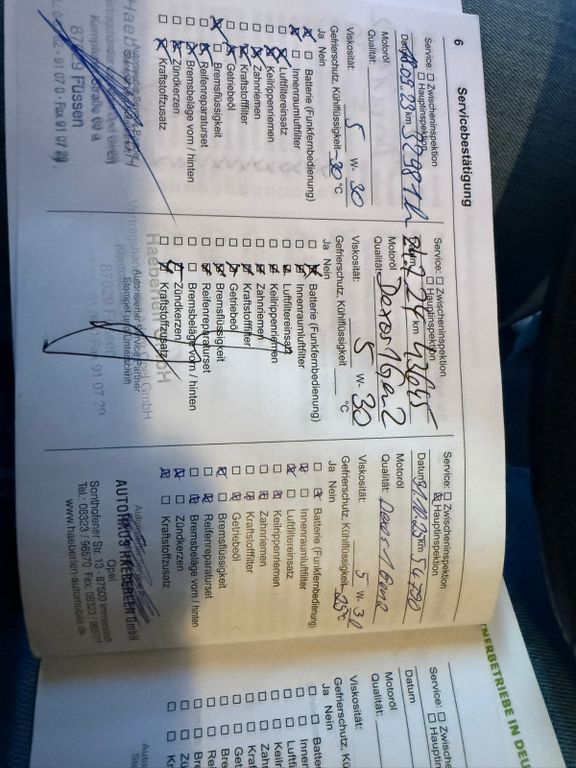 6
Servicebestätigung
Service: ☐ Zwischeninspektion
☐ Hauptinspektion
Datum 23 km
Motoröl
Qualität:
Viskosität: 5 W- 30
Gefrierschutz, Kühlflüssigkeit -30 °C
Ja Nein
Batterie (Funkfernbedienung)
Innenraumluftfilter
Luftfiltereinsatz
Keilrippenriemen
Zahnriemen
Kraftstofffilter
Getriebeöl
Bremsflüssigkeit
Reifenreparaturset
Bremsbeläge vorn / hinten
Zündkerzen
Kraftstoffzusatz
87629 Füssen
91 07 0 - Fax 91 07
Service: ☐ Zwischeninspektion
☐ Hauptinspektion
24 km 43645
Motoröl
Qualität: Dexos 1 Gen 2
Viskosität: 5 W- 30
Gefrierschutz, Kühlflüssigkeit °C
Ja Nein
Batterie (Funkfernbedienung)
Innenraumluftfilter
Luftfiltereinsatz
Keilrippenriemen
Zahnriemen
Kraftstofffilter
Getriebeöl
Bremsflüssigkeit
Reifenreparaturset
Bremsbeläge vorn / hinten
Zündkerzen
Kraftstoffzusatz
Autorisierter Service Partner
Stempel und Unterschrift
Service: ☐ Zwischeninspektion
☒ Hauptinspektion
Datum 10.25 km 54790
Motoröl
Qualität:
Viskosität: 5 W- 30
Gefrierschutz, Kühlflüssigkeit -25 °C
Ja Nein
Batterie (Funkfernbedienung)
Innenraumluftfilter
Luftfiltereinsatz
Keilrippenriemen
Zahnriemen
Kraftstofffilter
Getriebeöl
Bremsflüssigkeit
Reifenreparaturset
Bremsbeläge vorn / hinten
Zündkerzen
Kraftstoffzusatz
Opel
AUTOHAUS HAEBERLEN GmbH
Sonthofener Str. 13 · 87509 Immenstadt
Tel.: 08323 / 96570 Fax: 08323
www.haeberlen-automobile.de
NERBETRIEBE IN DEU
Service: ☐ Zwische
☐ Hauptin
Datum
Motoröl
Qualität:
Viskosität:
Gefrierschutz, Kü
Ja Nein
Batte
Innen
Luftfi
Keilri
Zahn
Kraft
Getr
Bre
Rei
Bre
Zün
Kra